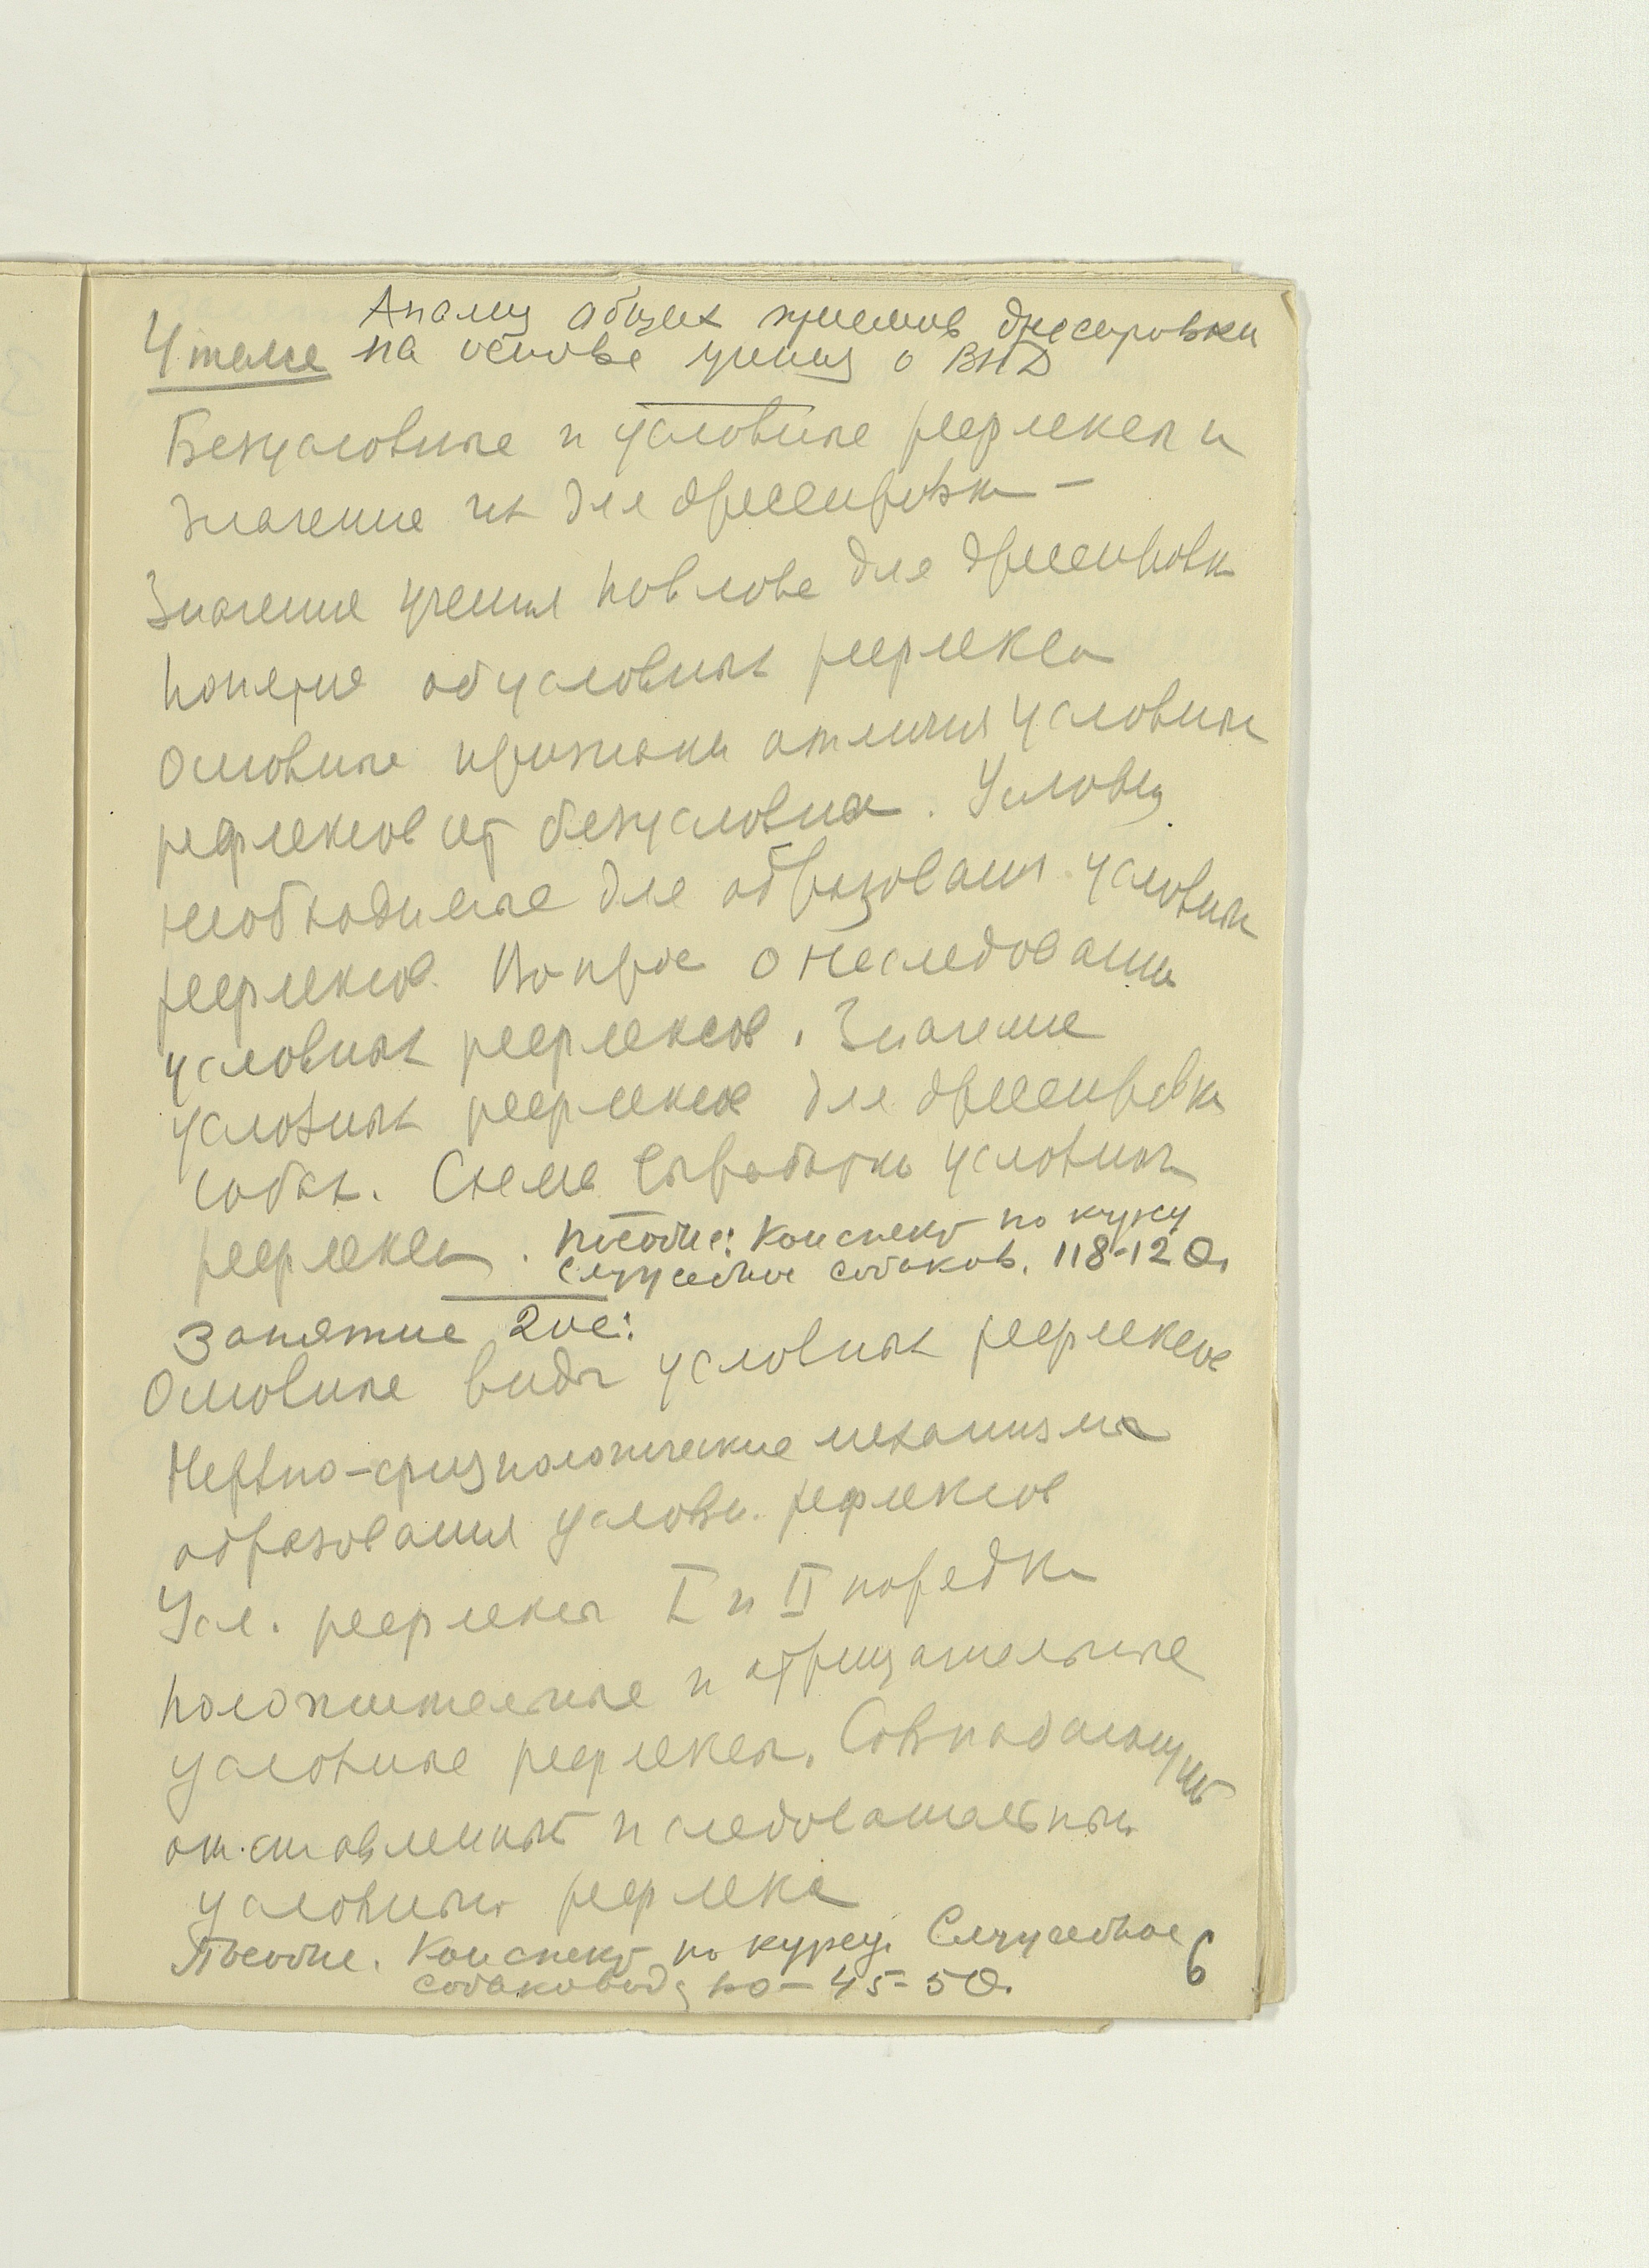 Анализ общих приемов дрессировки
4 тема на основе учения о ВНД
Безусловные и условные рефлексы и
значение их для дрессировки —
Значение учения Павлова для дрессировки
Понятие об условных рефлексах
Основные признаки отличия условных
рефлексов от безусловных. Условия
необходимые для образования условных
рефлексов. Вопрос о наследовании
условных рефлексов. Значение
условных рефлексов для дрессировки
собак. Схема выработки условных
рефлексов. Пособие: Конспект по курсу
служебное собаков. 118-120.
Занятие 2ое:
Основные виды условных рефлексов
Нервно-физиологические механизмы
образования условн. рефлексов
Усл. рефлексы I и II порядка
Положительные и отрицательные
условные рефлексы. Совпадающий
отставленный и следовательный
условный рефлекс
Пособие. Конспект по курсу. Служебное
собаковод по — 45-50.
6